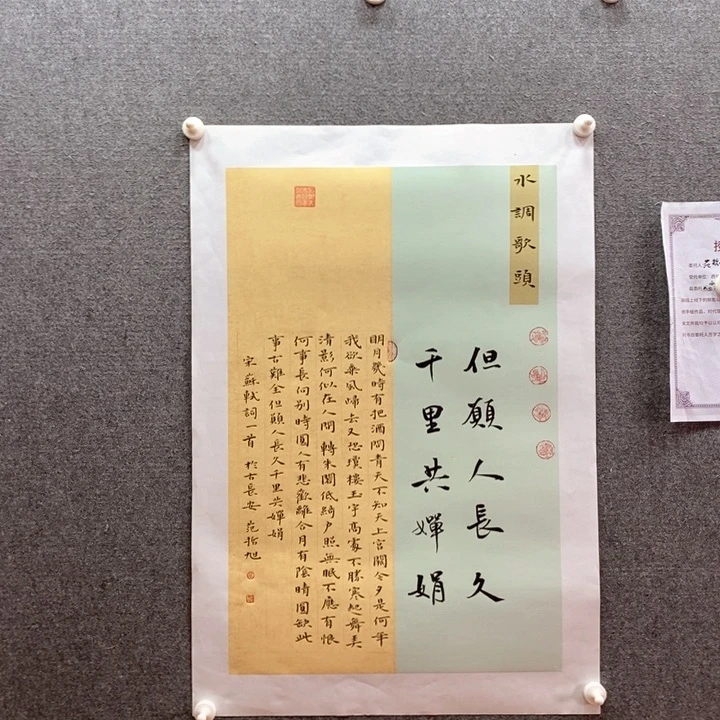 水調歌頭
但願人長久
千里共嬋娟
明月幾時有把酒問青天不知天上宮闕今夕是何年
我欲乘風歸去又恐瓊樓玉宇高處不勝寒起舞弄
清影何似在人間 轉朱閣低綺戶照無眠不應有恨
何事長向別時圓人有悲歡離合月有陰晴圓缺此
事古難全但願人長久千里共嬋娟
宋蘇軾詞一首 於古長安 范哲旭